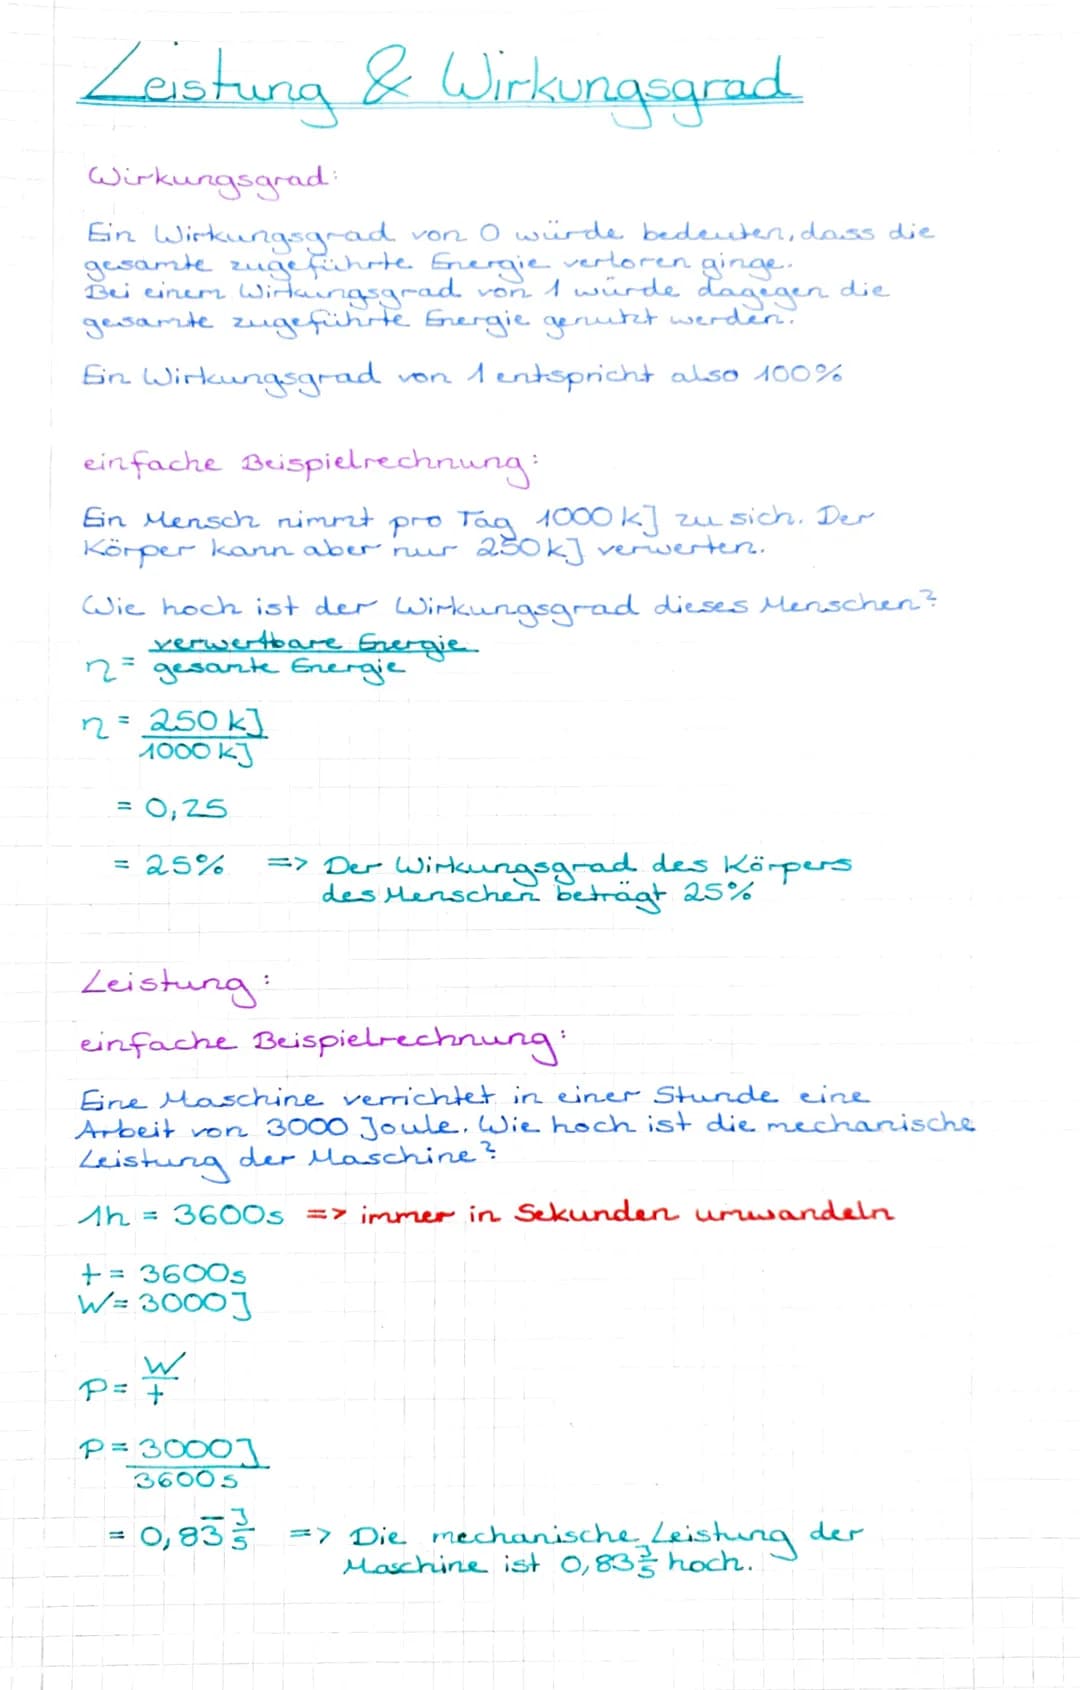 Leistung & Wirkungsgrad
Wirkungsgrad:
Ein Wirkungsgrad von 0 würde bedeuten, dass die
gesamte zugeführte Energie verloren ginge.
Bei einem Wirkungsgrad von 1 würde dagegen die
gesamte zugeführte Energie genutzt werden.
Ein Wirkungsgrad von 1 entspricht also 100%
einfache Beispielrechnung:
Ein Mensch nimmt pro Tag 1000 kJ zu sich. Der
Körper kann aber nur 250 kJ verwerten.
Wie hoch ist der Wirkungsgrad dieses Menschen?
verwertbare Energie
η = gesamte Energie
η = 250 kJ
1000 kJ
= 0,25
= 25% => Der Wirkungsgrad des Körpers
des Menschen beträgt 25%
Leistung:
einfache Beispielrechnung:
Eine Maschine verrichtet in einer Stunde eine
Arbeit von 3000 Joule. Wie hoch ist die mechanische
Leistung der Maschine?
1h = 3600s => immer in Sekunden umwandeln
t = 3600s
W = 3000J
P = W/t
P = 3000J
3600s
= 0,83̅ J/s => Die mechanische Leistung der
Maschine ist 0,83 J/s hoch.